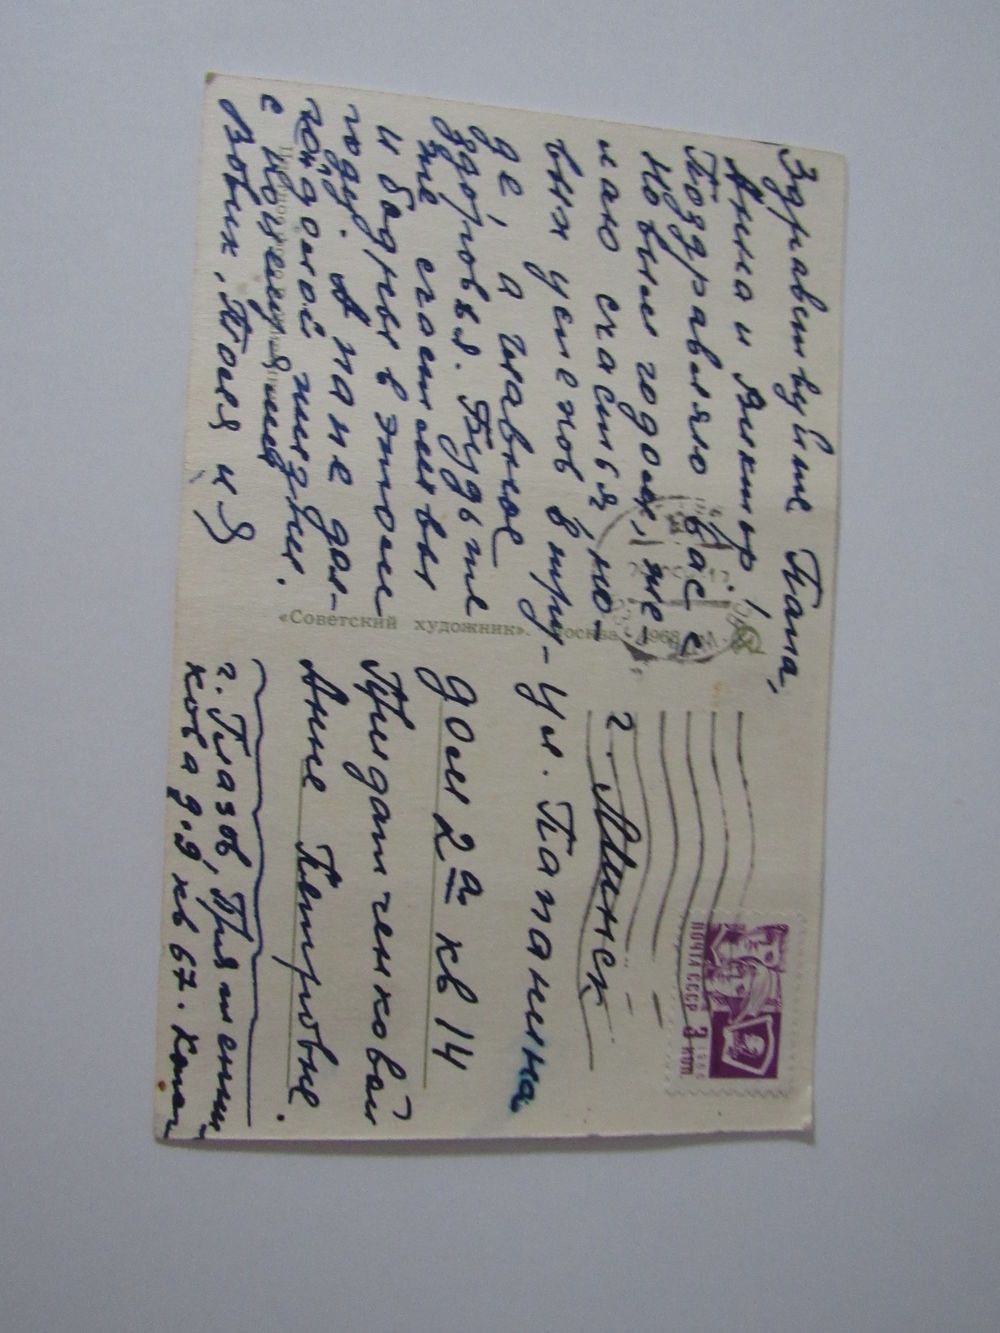 Здравствуйте Папа,
Анна и Виктор!
Поздравляю вас с
Новым годом, же-
лаю счастья, но-
вых успехов в тру-
де, а главное
здоровья. Будьте
же счастливы
и бодры в этом
году. А папе дол-
гой долгой жизни.
с поцелуями
Вовик, Толя и Я
«Советский художник». Москва. 1968
ПОЧТА СССР 3 коп.
1966
г. Минск
ул. Папанина
дом 2а кв 14
Придатченковой
Анне Петровне.
г. Глазов, Пряженни-
кова д. 9 кв 67.